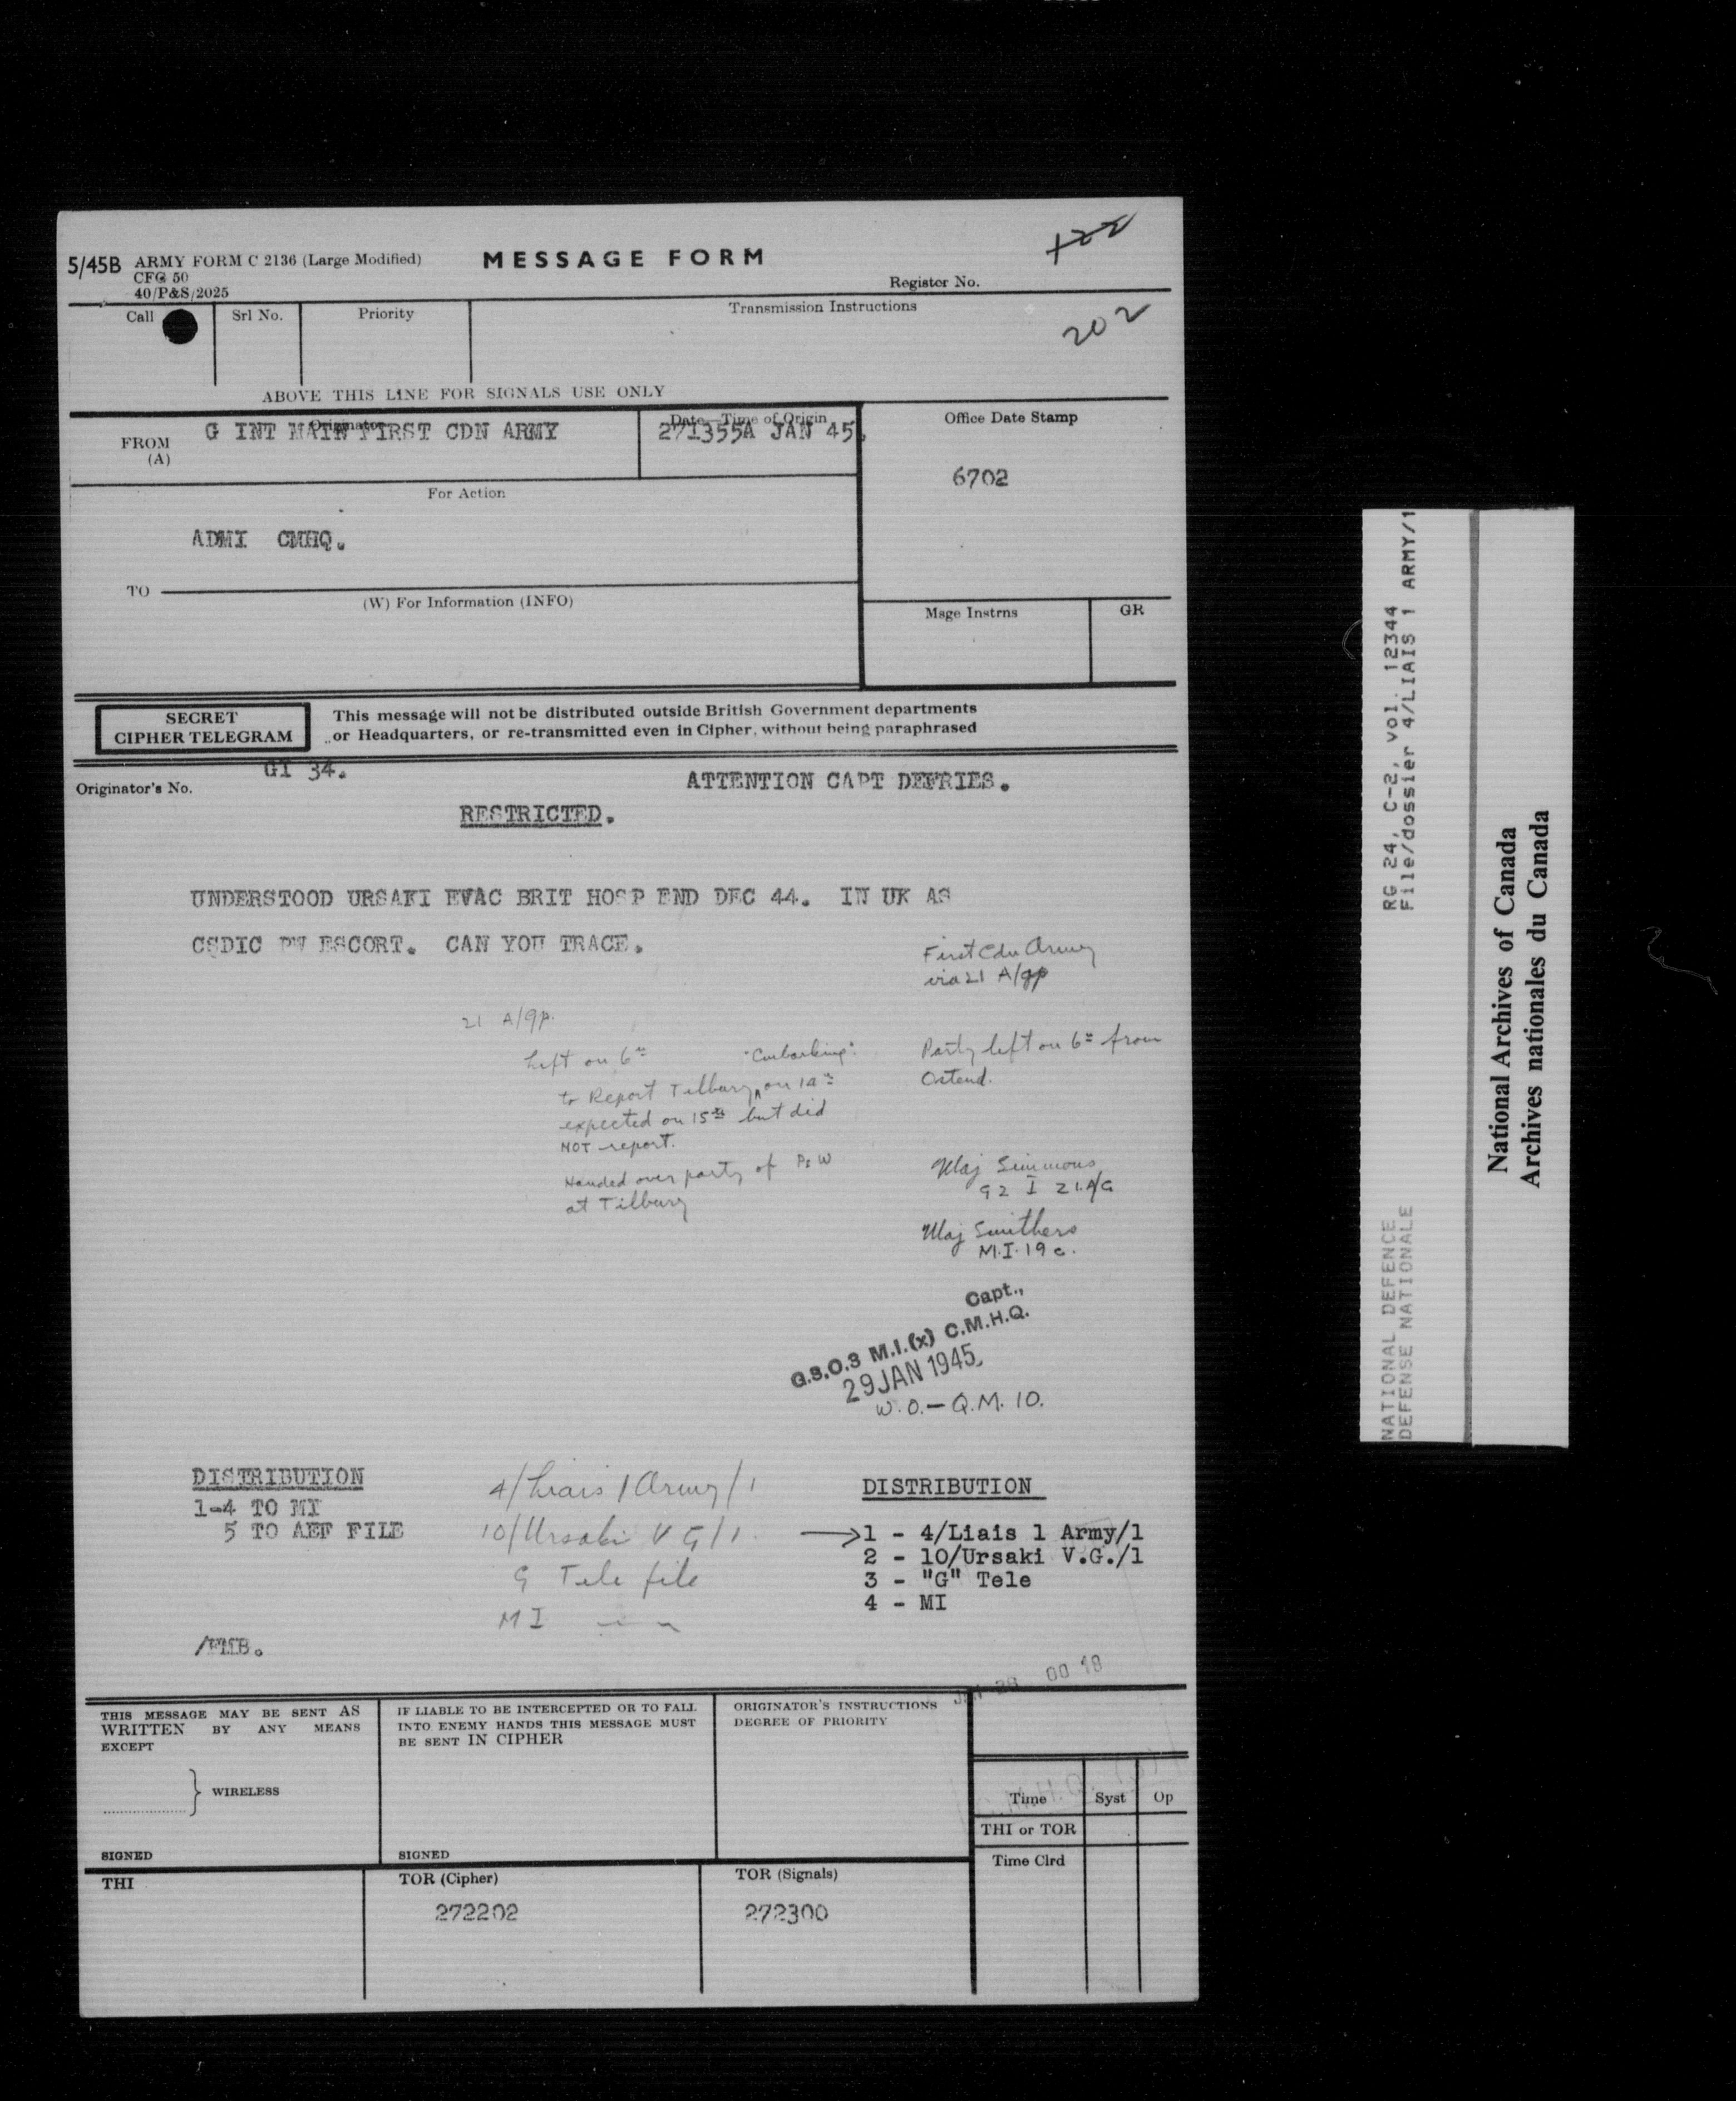 5/45B ARMY FORM C 2136 (Large Modified)
CFG 50
40/P&S/2025
MESSAGE FORM
Register No.
122
Call
Srl No.
Priority
Transmission Instructions
202
ABOVE THIS LINE FOR SIGNALS USE ONLY
FROM
(A)
Originator
G INT MAIN FIRST CDN ARMY
Date—Time of Origin
271355A JAN 45.
Office Date Stamp
6702
For Action
ADMI CMHQ.
TO
(W) For Information (INFO)
Msge Instrns
GR
SECRET
CIPHER TELEGRAM
This message will not be distributed outside British Government departments
or Headquarters, or re-transmitted even in Cipher, without being paraphrased
GI 34.
Originator's No.
ATTENTION CAPT DEFRIES.
RESTRICTED.
UNDERSTOOD URSAKI EVAC BRIT HOSP END DEC 44. IN UK AS
CSDIC PW ESCORT. CAN YOU TRACE.
First Cdn Army
via 21 A/gp
21 A/gp.
Left on 6th
"Embarking".
to Report Tilbury on 14th
expected on 15th but did
NOT report.
Handed over party of Ps W
at Tilbury
Party left on 6th from
Ostend.
Maj Simmons
G2 I 21.A/G
Maj Smithers
M.I.19 c.
Capt.,
G.S.O.3 M.I.(x) C.M.H.Q.
29 JAN 1945
W.O. — Q.M. 10.
DISTRIBUTION
1-4 TO MI
5 TO AEF FILE
4/Liais 1 Army/1
10/Ursaki V G/1
G Tele file
MI
DISTRIBUTION
1 - 4/Liais 1 Army/1
2 - 10/Ursaki V.G./1
3 - "G" Tele
4 - MI
/FMB.
JAN 28 00 18
THIS MESSAGE MAY BE SENT AS
WRITTEN BY ANY MEANS
EXCEPT
WIRELESS
SIGNED
IF LIABLE TO BE INTERCEPTED OR TO FALL
INTO ENEMY HANDS THIS MESSAGE MUST
BE SENT IN CIPHER
SIGNED
ORIGINATOR'S INSTRUCTIONS
DEGREE OF PRIORITY
Time
Syst
Op
THI or TOR
Time Clrd
THI
TOR (Cipher)
272202
TOR (Signals)
272300
RG 24, C-2, vol. 12344
File/dossier 4/LIAIS 1 ARMY/1
NATIONAL DEFENCE
DEFENSE NATIONALE
National Archives of Canada
Archives nationales du Canada